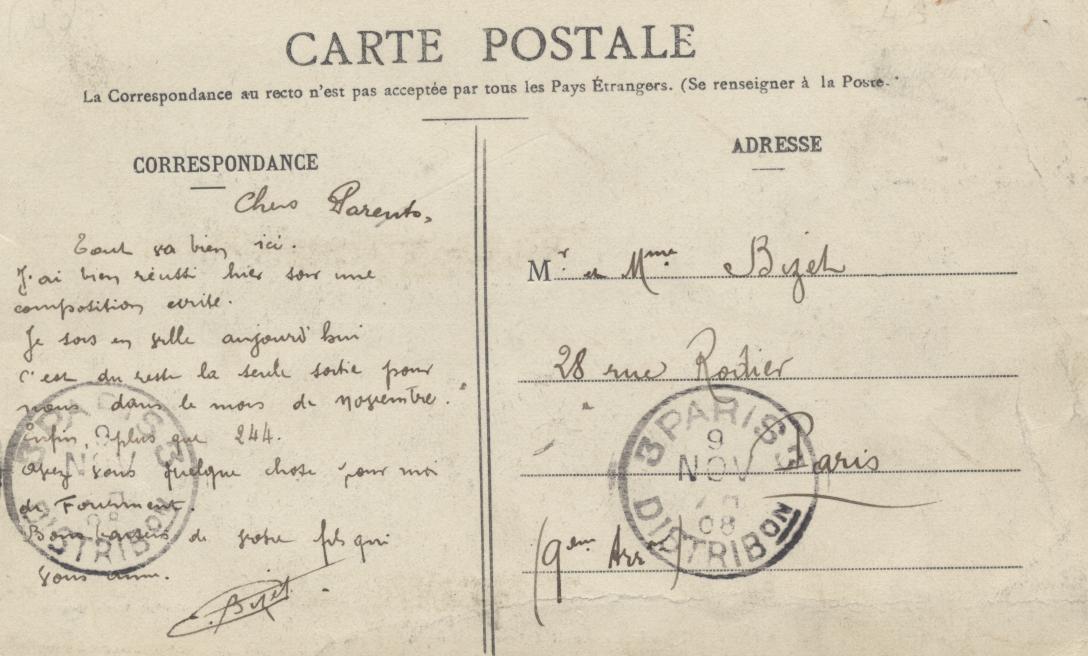 CARTE POSTALE
La Correspondance au recto n'est pas acceptée par tous les Pays Étrangers. (Se renseigner à la Poste.
CORRESPONDANCE
Chers Parents,
Tout va bien ici.
J'ai bien réussi hier son une
composition écrite.
Je sors en ville aujourd'hui
c'est du reste la seule sortie pour
nous dans le mois de novembre.
Enfin, plus que 244.
Avez vous quelque chose pour moi
de Fourment.
Bons baisers de votre fils qui
vous aime.
Bizet
ADRESSE
Mr et Mme Bizet
28 rue Rodier
Paris
(9em Arrt)
3 PARIS 3
9
NOV
08
DISTRIBON
3 PARIS 3
9
NOV
08
DISTRIBON